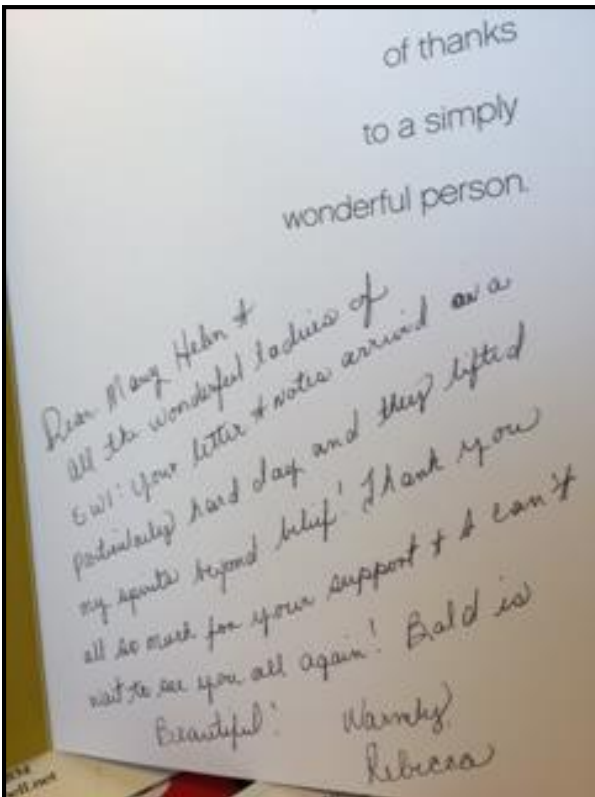 of thanks
to a simply
wonderful person.
Dear Mary Helen &
all the wonderful ladies of
EWI: Your letter & notes arrived on a
particularly hard day and they lifted
my spirits beyond belief! Thank you
all so much for your support & I can't
wait to see you all again! Bald is
Beautiful! Warmly,
Rebecca
ell.net